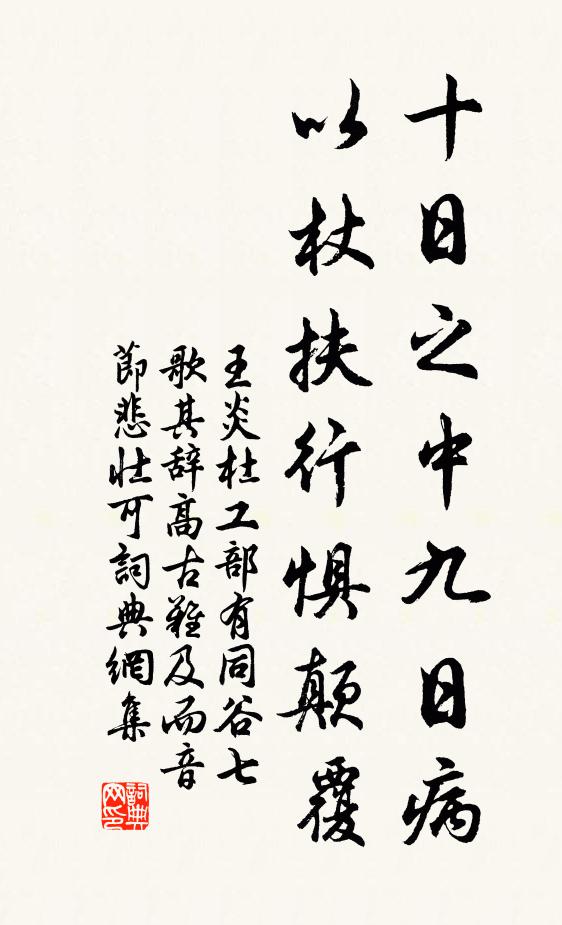 十日之中九日病
以杖扶行惧颠覆
王炎杜工部有同谷七
歌其辞高古难及而音
節悲壮可詞典網集
詞典网印